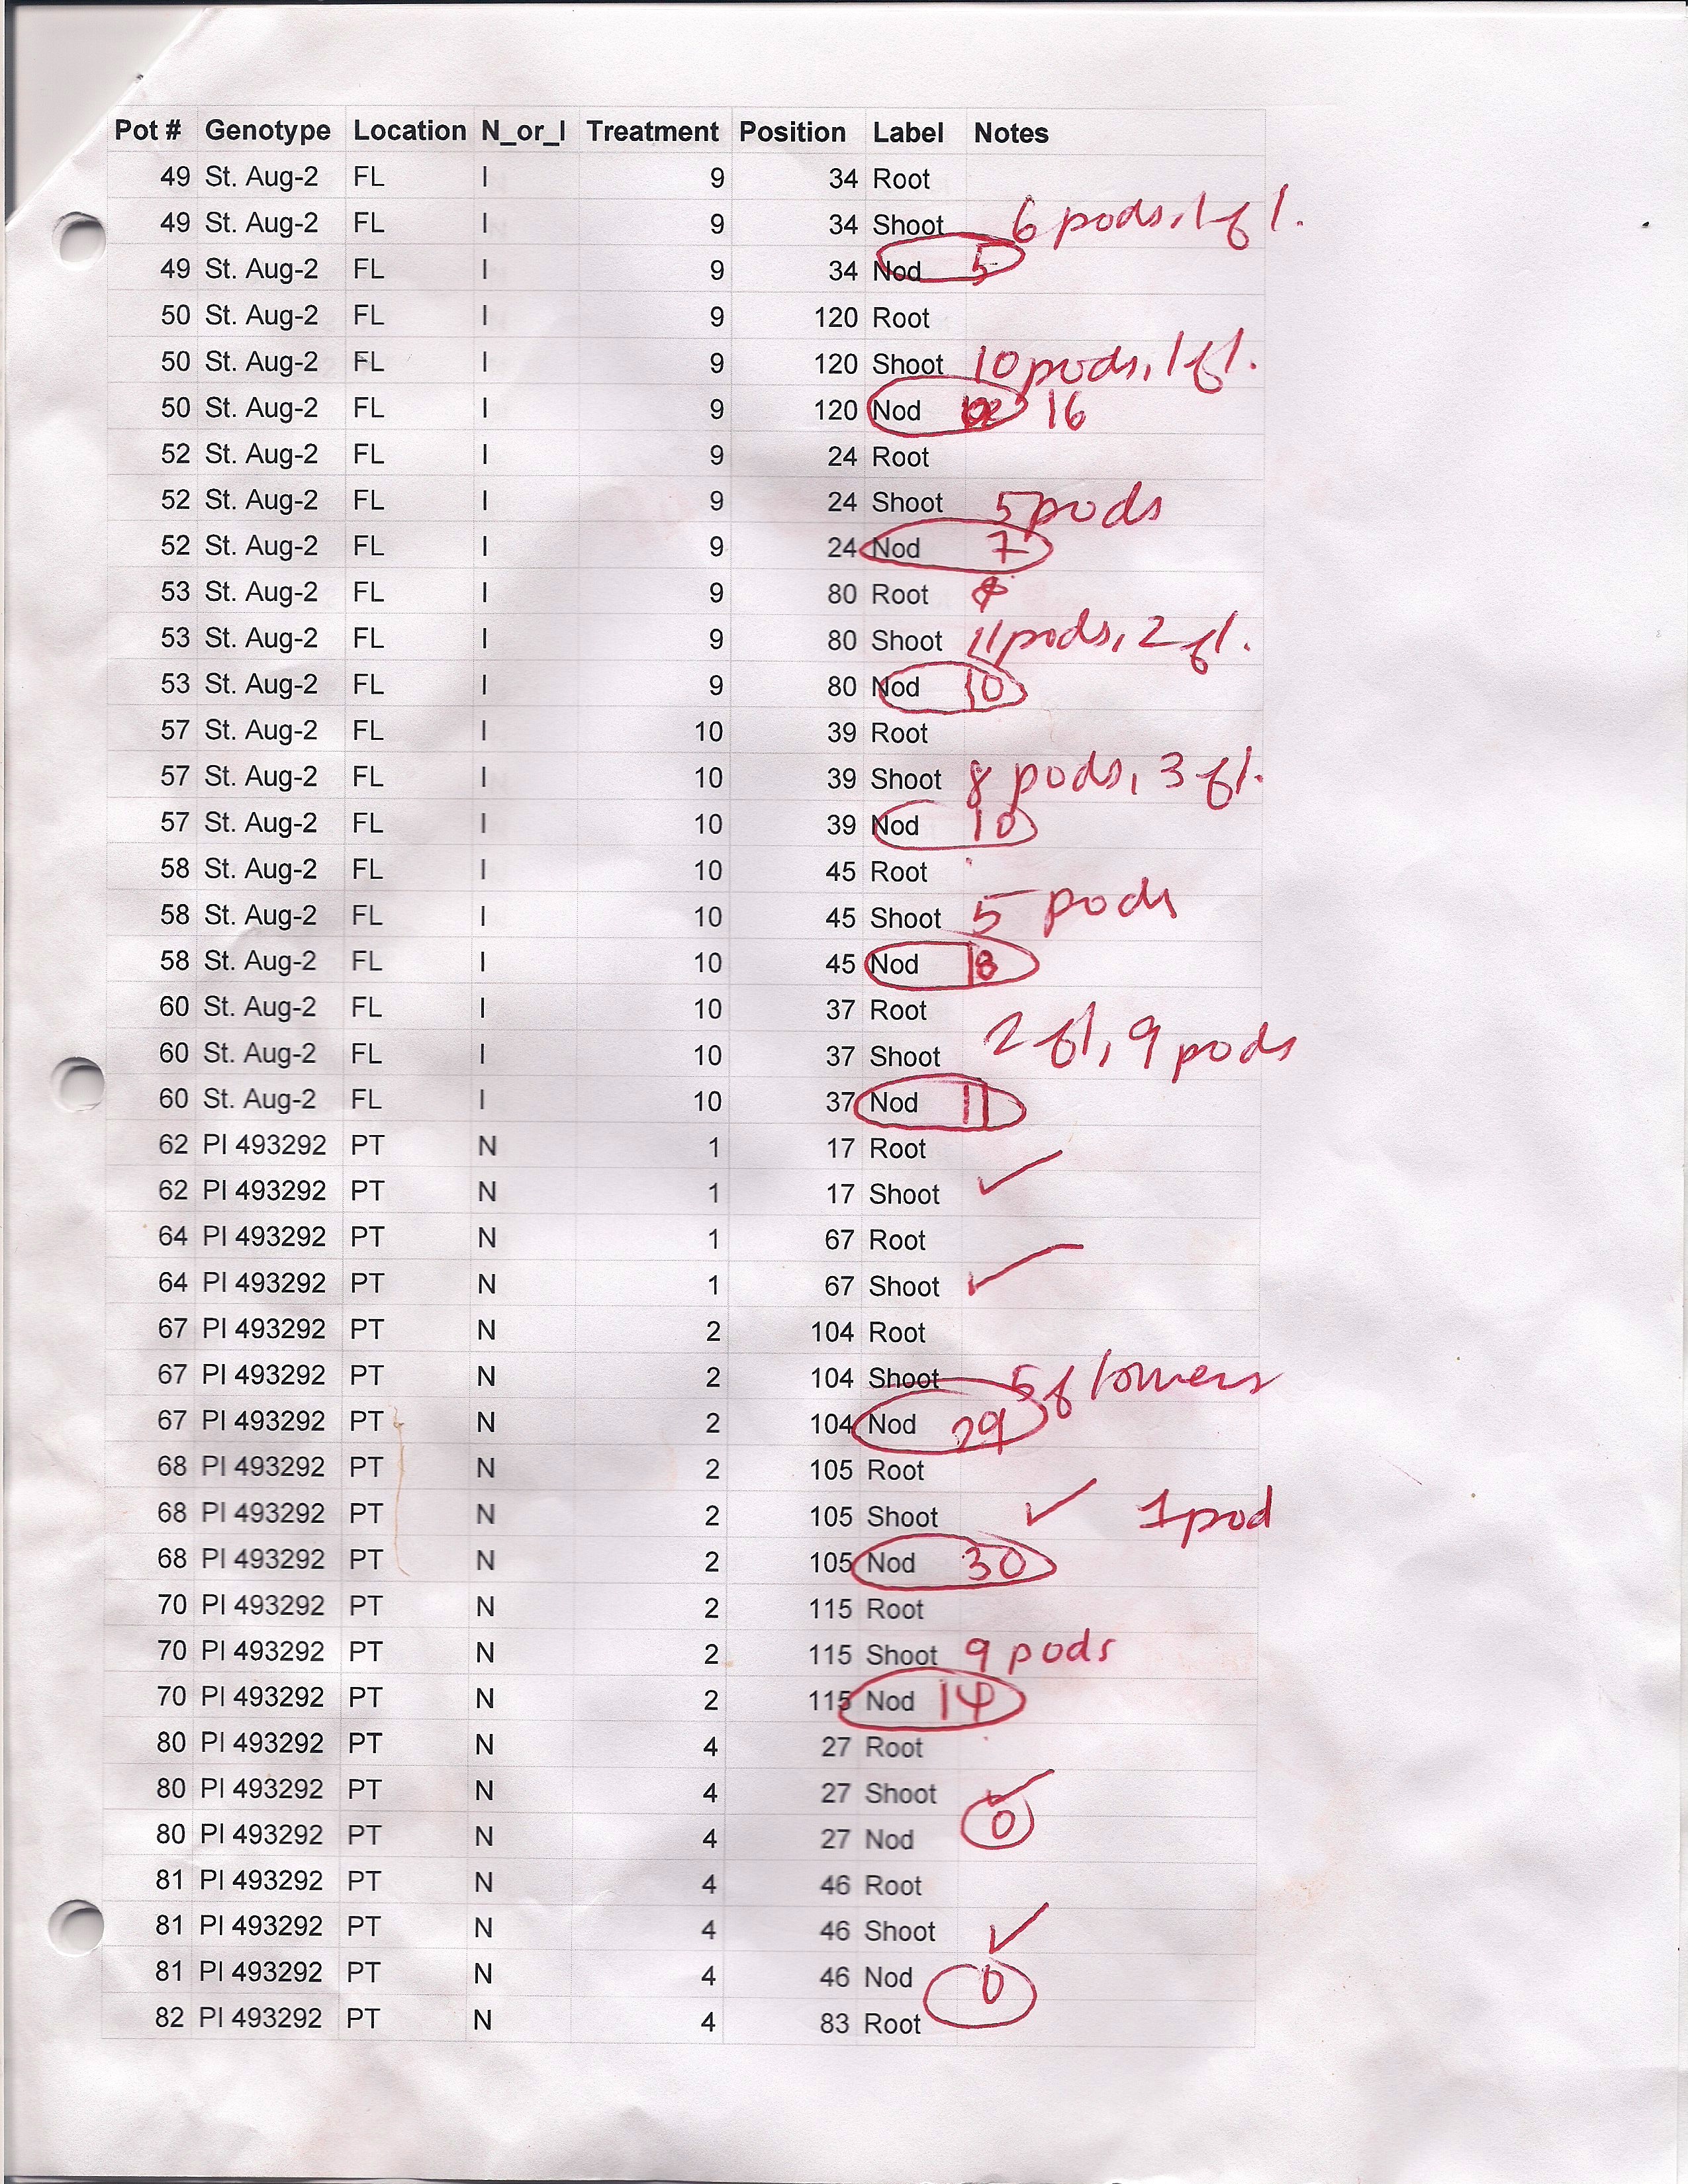 Pot # Genotype Location N_or_I Treatment Position Label Notes
49 St. Aug-2 FL I 9 34 Root
49 St. Aug-2 FL I 9 34 Shoot 6 pods, 1 fl.
49 St. Aug-2 FL I 9 34 Nod 5
50 St. Aug-2 FL I 9 120 Root
50 St. Aug-2 FL I 9 120 Shoot 10 pods, 1 fl.
50 St. Aug-2 FL I 9 120 Nod 16
52 St. Aug-2 FL I 9 24 Root
52 St. Aug-2 FL I 9 24 Shoot 5 pods
52 St. Aug-2 FL I 9 24 Nod 7
53 St. Aug-2 FL I 9 80 Root
53 St. Aug-2 FL I 9 80 Shoot 11 pods, 2 fl.
53 St. Aug-2 FL I 9 80 Nod 10
57 St. Aug-2 FL I 10 39 Root
57 St. Aug-2 FL I 10 39 Shoot 8 pods, 3 fl.
57 St. Aug-2 FL I 10 39 Nod 10
58 St. Aug-2 FL I 10 45 Root
58 St. Aug-2 FL I 10 45 Shoot 5 pods
58 St. Aug-2 FL I 10 45 Nod 18
60 St. Aug-2 FL I 10 37 Root
60 St. Aug-2 FL I 10 37 Shoot 2 fl, 9 pods
60 St. Aug-2 FL I 10 37 Nod 11
62 PI 493292 PT N 1 17 Root
62 PI 493292 PT N 1 17 Shoot ✓
64 PI 493292 PT N 1 67 Root
64 PI 493292 PT N 1 67 Shoot ✓
67 PI 493292 PT N 2 104 Root
67 PI 493292 PT N 2 104 Shoot 5 flowers
67 PI 493292 PT N 2 104 Nod 29
68 PI 493292 PT N 2 105 Root
68 PI 493292 PT N 2 105 Shoot ✓ 1 pod
68 PI 493292 PT N 2 105 Nod 30
70 PI 493292 PT N 2 115 Root
70 PI 493292 PT N 2 115 Shoot 9 pods
70 PI 493292 PT N 2 115 Nod 14
80 PI 493292 PT N 4 27 Root
80 PI 493292 PT N 4 27 Shoot ✓
80 PI 493292 PT N 4 27 Nod 0
81 PI 493292 PT N 4 46 Root
81 PI 493292 PT N 4 46 Shoot ✓
81 PI 493292 PT N 4 46 Nod 0
82 PI 493292 PT N 4 83 Root